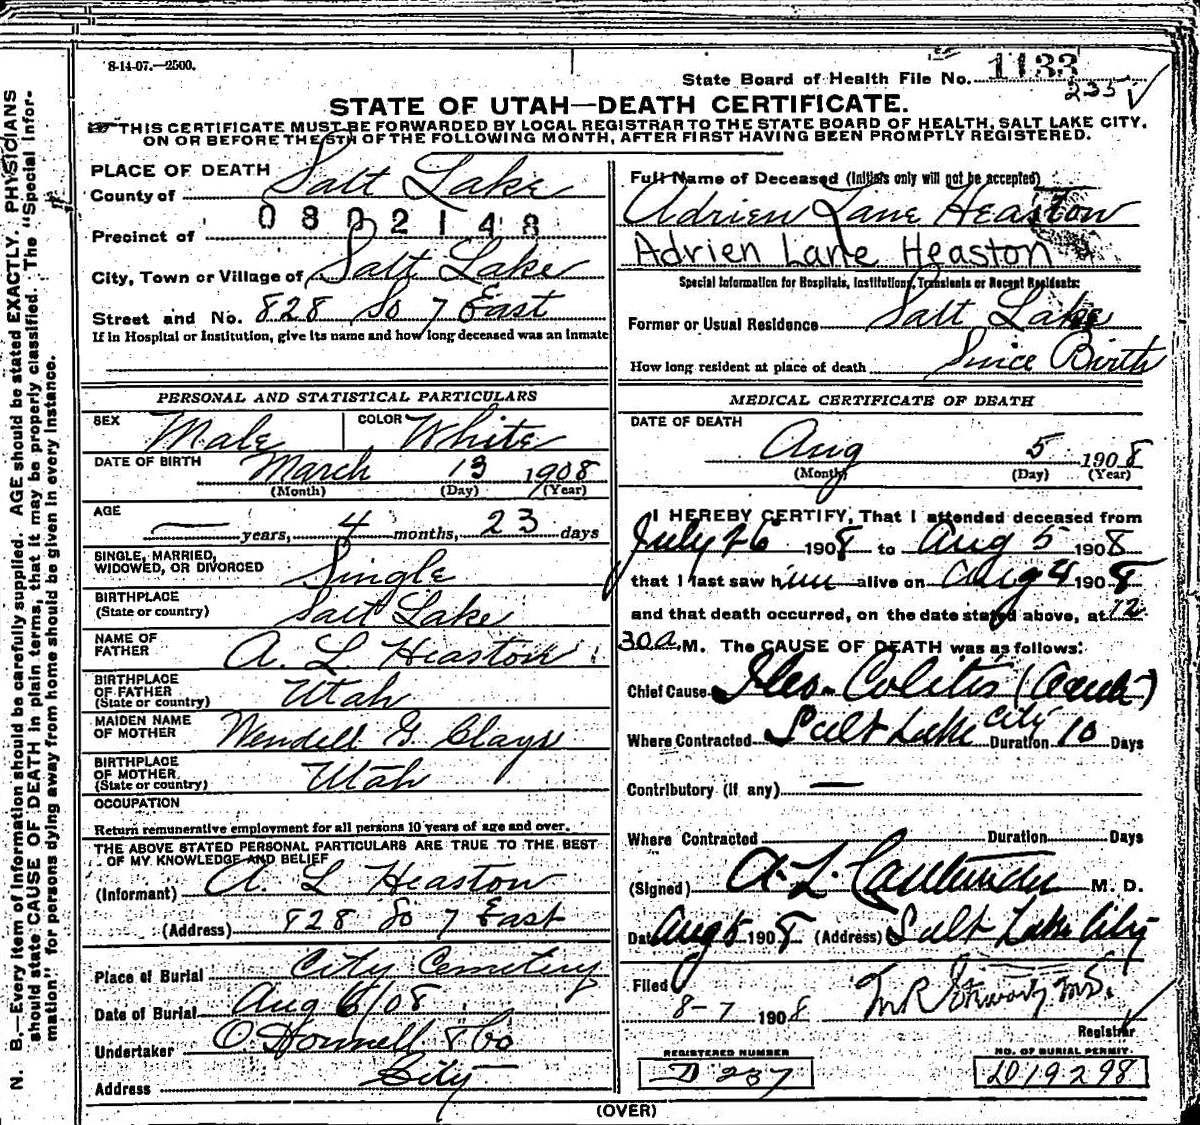 8-14-07.—2500.
State Board of Health File No. 1133
235
STATE OF UTAH—DEATH CERTIFICATE.
THIS CERTIFICATE MUST BE FORWARDED BY LOCAL REGISTRAR TO THE STATE BOARD OF HEALTH, SALT LAKE CITY,
ON OR BEFORE THE 5TH OF THE FOLLOWING MONTH, AFTER FIRST HAVING BEEN PROMPTLY REGISTERED.
N. B.—Every item of Information should be carefully supplied. AGE should be stated EXACTLY. PHYSICIANS
should state CAUSE OF DEATH in plain terms, that it may be properly classified. The "Special Infor-
mation" for persons dying away from home should be given in every instance.
PLACE OF DEATH
County of Salt Lake
0802148
Precinct of
City, Town or Village of Salt Lake
Street and No. 828 So 7 East
If in Hospital or Institution, give its name and how long deceased was an inmate
PERSONAL AND STATISTICAL PARTICULARS
SEX Male COLOR White
DATE OF BIRTH March 13 1908
(Month) (Day) (Year)
AGE
— years, 4 months, 23 days
SINGLE, MARRIED,
WIDOWED, OR DIVORCED Single
BIRTHPLACE
(State or country) Salt Lake
NAME OF
FATHER A. L Heaston
BIRTHPLACE
OF FATHER
(State or country) Utah
MAIDEN NAME
OF MOTHER Wendell G. Clays
BIRTHPLACE
OF MOTHER
(State or country) Utah
OCCUPATION
Return remunerative employment for all persons 10 years of age and over.
THE ABOVE STATED PERSONAL PARTICULARS ARE TRUE TO THE BEST
OF MY KNOWLEDGE AND BELIEF
(Informant) A. L Heaston
(Address) 828 So 7 East
Place of Burial City Cemetery
Date of Burial Aug 6/08
Undertaker O'Donnell & Co
Address City
Full Name of Deceased (Initials only will not be accepted)
Adrien Lane Heaston
Adrien Lane Heaston
Special Information for Hospitals, Institutions, Transients or Recent Residents:
Former or Usual Residence Salt Lake
How long resident at place of death Since Birth
MEDICAL CERTIFICATE OF DEATH
DATE OF DEATH
Aug 5 1908
(Month) (Day) (Year)
I HEREBY CERTIFY, That I attended deceased from
July 26 1908 to Aug 5 1908
that I last saw him alive on Aug 4 1908
and that death occurred, on the date stated above, at 12
30 a. M. The CAUSE OF DEATH was as follows:
Chief Cause Ileo-Colitis (Acute)
Where Contracted Salt Lake City Duration 10 Days
Contributory (if any) —
Where Contracted Duration Days
(Signed) A. L. M. D.
Date Aug 5 1908 (Address) Salt Lake City
Filed
8-7 1908 M R Stewart M.D.
Registrar
REGISTERED NUMBER
D 237
NO. OF BURIAL PERMIT
(OVER)